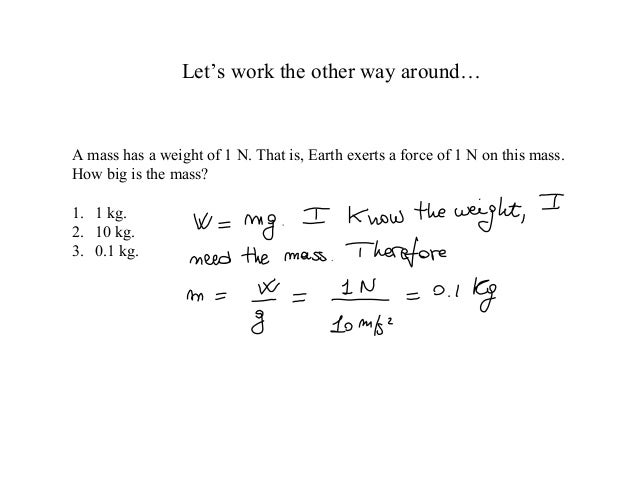 Let's work the other way around…
A mass has a weight of 1 N. That is, Earth exerts a force of 1 N on this mass.
How big is the mass?
1. 1 kg.
2. 10 kg.
3. 0.1 kg.
W = mg. I Know the weight, I
need the mass. Therefore
m = W/g = 1 N/10 m/s² = 0.1 Kg